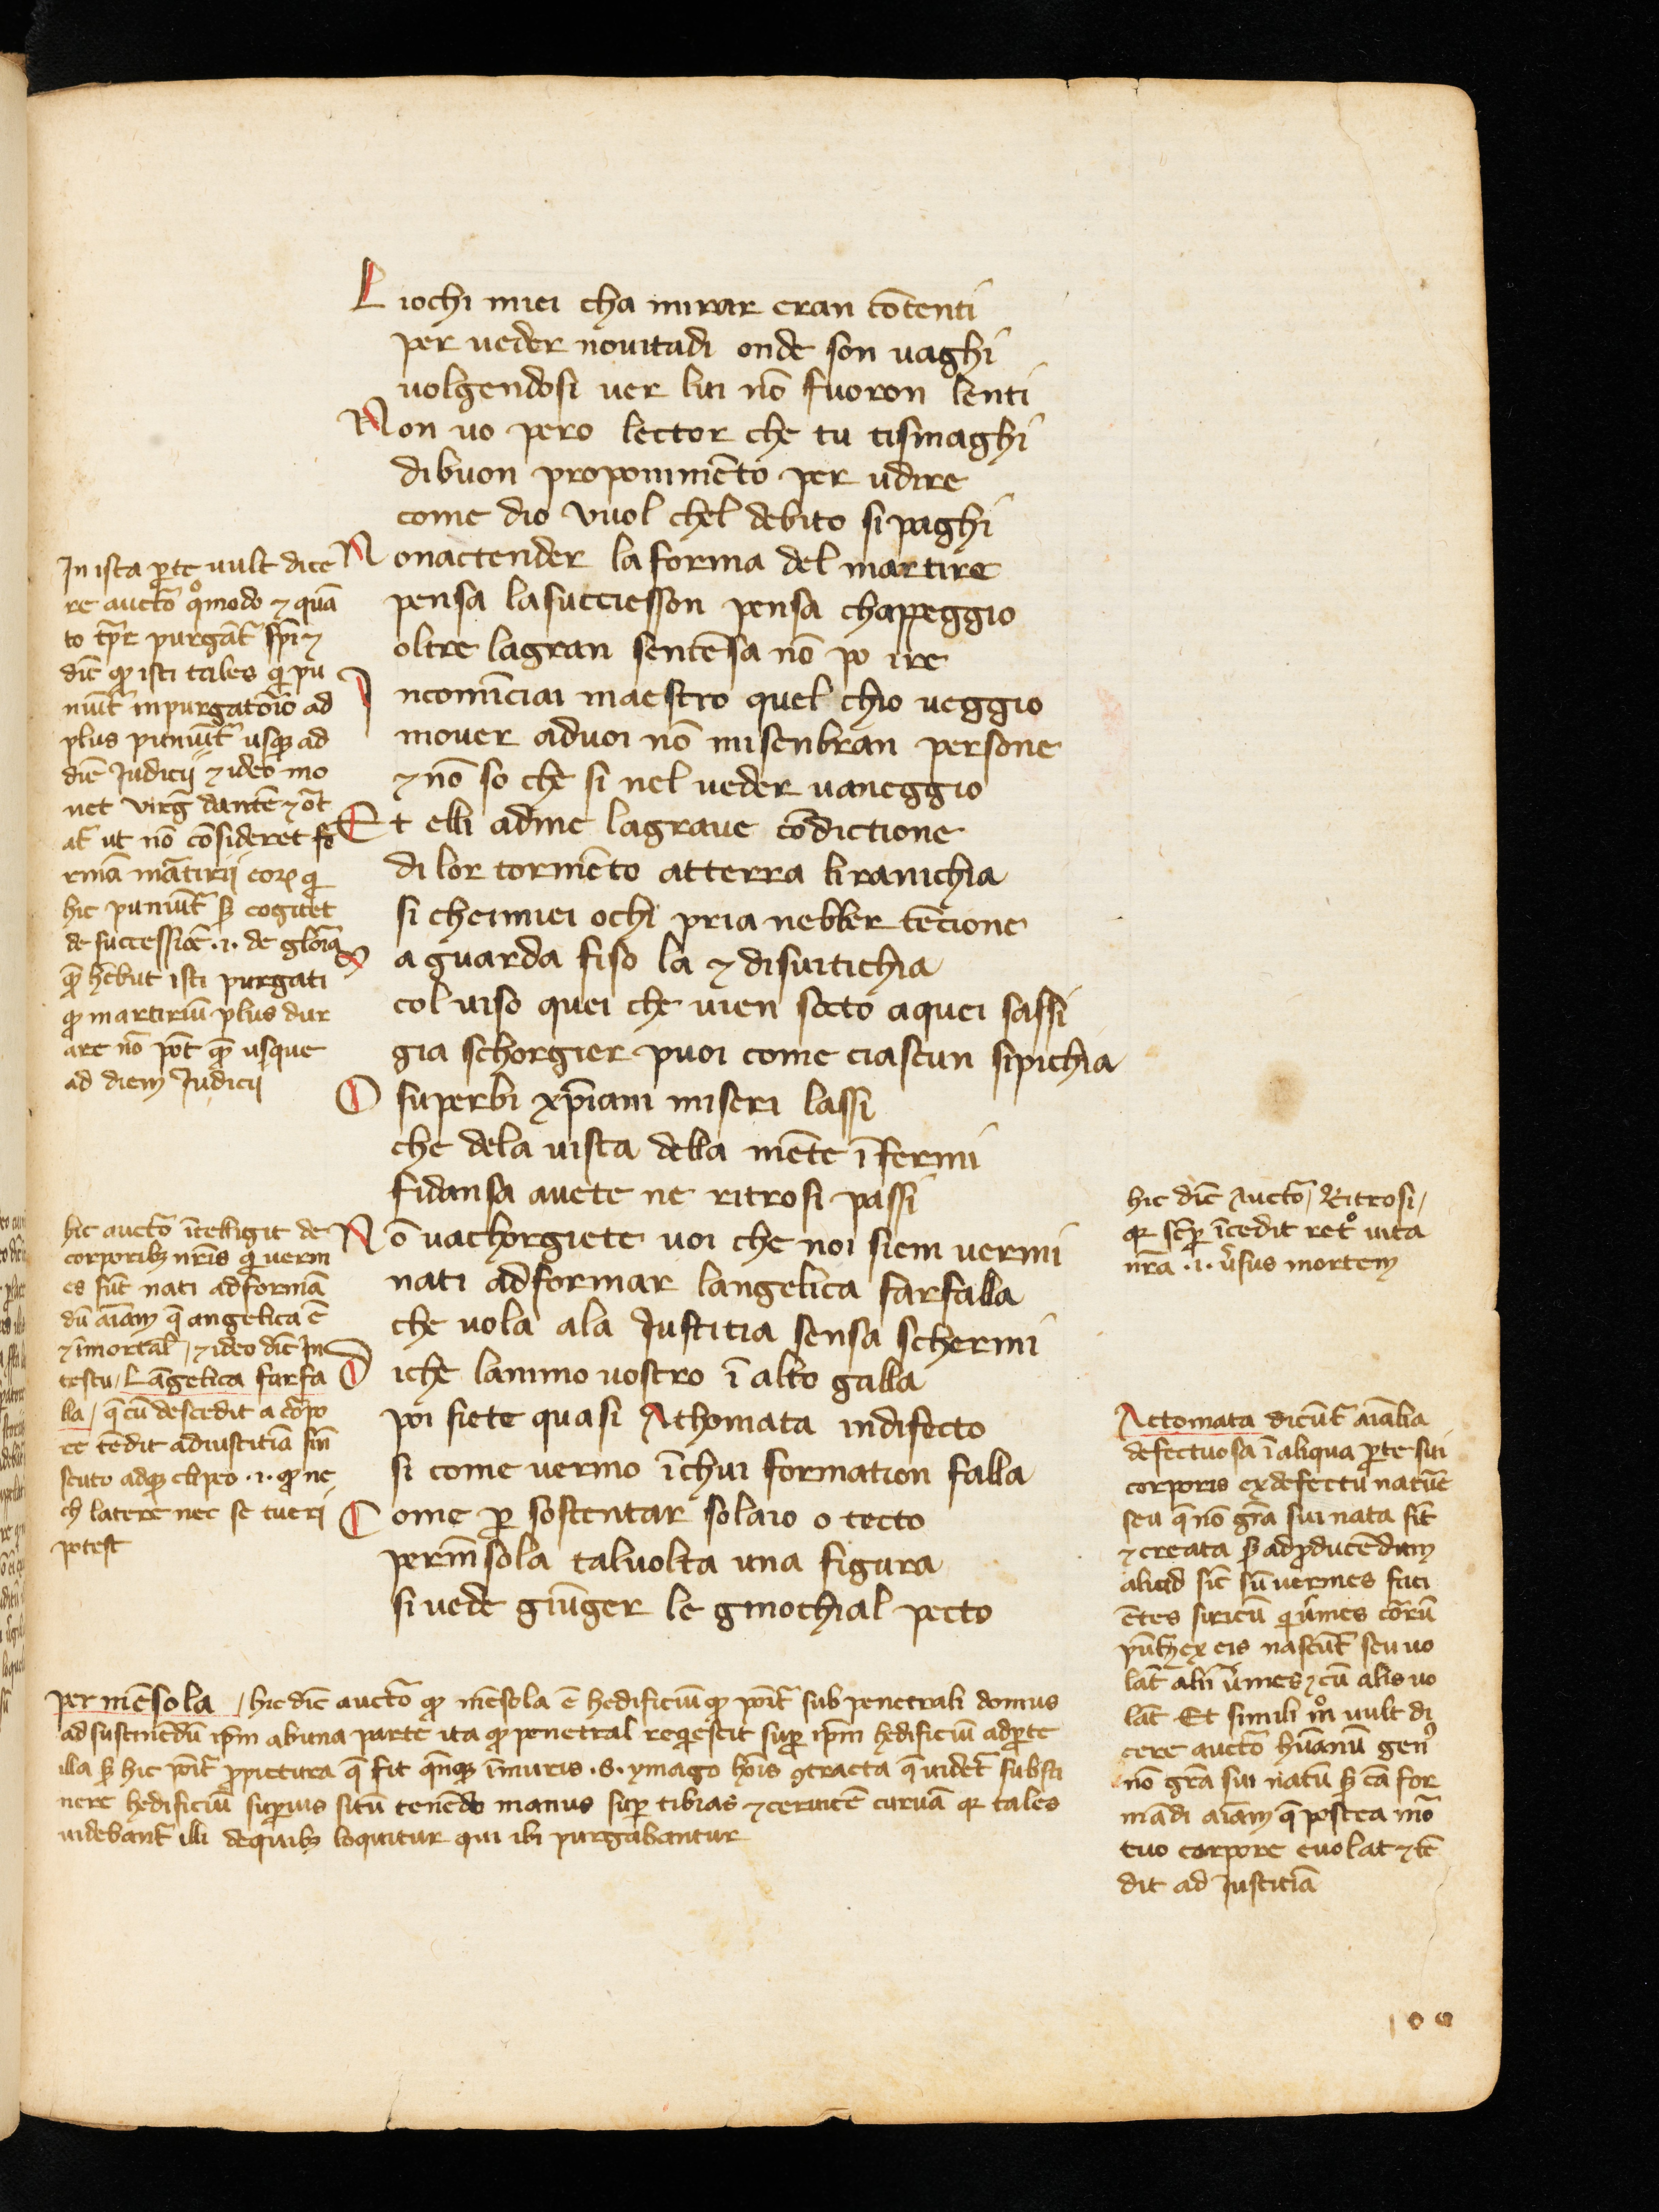 L iochi miei cha mirar eran cōtenti
per ueder nouitadi onde son uaghi
uolgendosi uer lui nō fuoron lenti
Non uo pero lector che tu tismaghi
dibuon proponimēto per udire
come dio vuol chel debito si paghi
N onactender la forma del martire
pensa lasucciesson pensa chappeggio
oltre lagran sentēsa nō po ire
I ncomīciai maestro quel chio ueggio
mouer aduoi nō misenbran persone
⁊ nō so che si nel ueder uaneggio
Et elli adme lagraue cōdictione
di lor tormēto atterra li ranichia
si cheimiei ochi pria nebber tēcione
M a guarda fiso la ⁊ disuitichia
col uiso quei che uien socto aquei sassi
gia schorgier puoi come ciascun sipichia
O superbi xp̄iani miseri lassi
che dela uista della mēte īfermi
fidansa auete ne ritrosi passi
N ō uachorgiete uoi che noi siem uermi
nati adformar langelica farfalla
che uola ala Justitia sensa schermi
D iche lanimo uostro ī alto galla
poi siete quasi Athomata indifecto
si come uermo īchui formation falla
C ome ꝑ sostentar solaio o tecto
permēsola taluolta una figura
si uede giūger le ginochial pecto
In ista ꝑte uult dice
re auctō qͦmodo ⁊ quā
to tp̄r purgāt sp̄i ⁊
dic̄ ꝙ isti tales qui pu
niūt inpurgatōio ad
plus puniūt̄ usqꝫ ad
diē Judicij ⁊ ideo mo
net virḡ dantē ⁊ ōt
at̄ ut nō cōsideret fo
rmā mātirij eoꝝ qui
hic puniūt̄ sꝫ cogitet
de successiōe .i. de glōia
quā hēbūt isti purgati
ꝙ martiriū plus dur
are nō pōt quā usque
ad diem Judicij
hic auctō ītelligit de
corporibꝫ nr̄is qui uerm
es sūt nati adformā
dū aīam q̄ angelica ē
⁊ īmortal̄ / ⁊ ideo dic̄ In
testu / Lāgelica farfa
lla / q̄ cū descēdit a corpo
re tēdit adiustitiā sin̄
scuto adqꝫ clipeo .i. ꝙ ne
ch latere nec se tueri
potest
hic dic̄ Auctō / Ritrosi /
qꝛ sēꝑ īcedit ret° uita
nr̄a .i. ūsus mortem
Actomata dicūt̄ aīalia
defectuosa ī aliqua ꝑte sui
corporis ex defectu natūe
seu q̄ nō grā sui nata sūt
⁊ creata sꝫ ad ꝓducēdum
aliud sic̄ sū uermes faci
ētes siricū
lāt̄ Et simili mō uult di
cere auctō hūanū gen⁹
nō grā sui natū sꝫ cā for
mādi aīam q̄ postea mō
tuo corpore euolat ⁊ tē
dit ad Justitiā
per mēsola / hic dic̄ auctō ꝙ mēsola ē hedificiū ꝙ pōit̄ sub penetrali domus
ad sustinēdū ip̄m abuna parte ita ꝙ penetral reqiescit suꝑ ip̄m hedificiū adꝑte
illa sꝫ hic pōit̄ ꝓpictura q̄ fit q̄nqꝫ īmuris .S. ymago hōis ꝯtracta q̄ uidet̄ susti
nere hedificiū suꝑius sitū tenēdo manus suꝑ tibias ⁊ ceruicē curuā qꝛ tales
uidebant̄ illi dequibꝫ loquitur qui ibi purgabantur